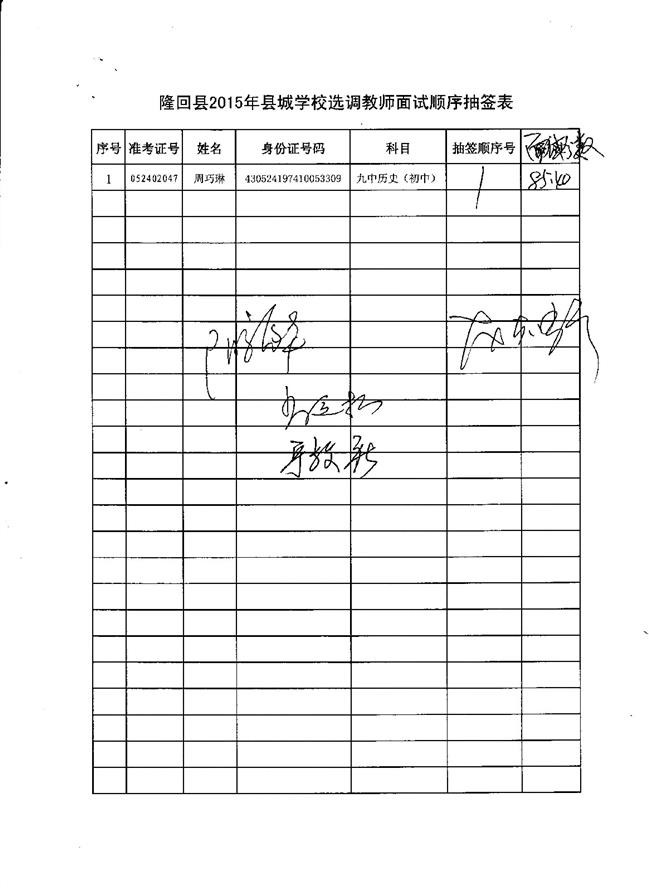 隆回县2015年县城学校选调教师面试顺序抽签表
序号 准考证号 姓名 身份证号码 科目 抽签顺序号 面试分数
1 052402047 周巧琳 430524197410053309 九中历史（初中） 1 85.40